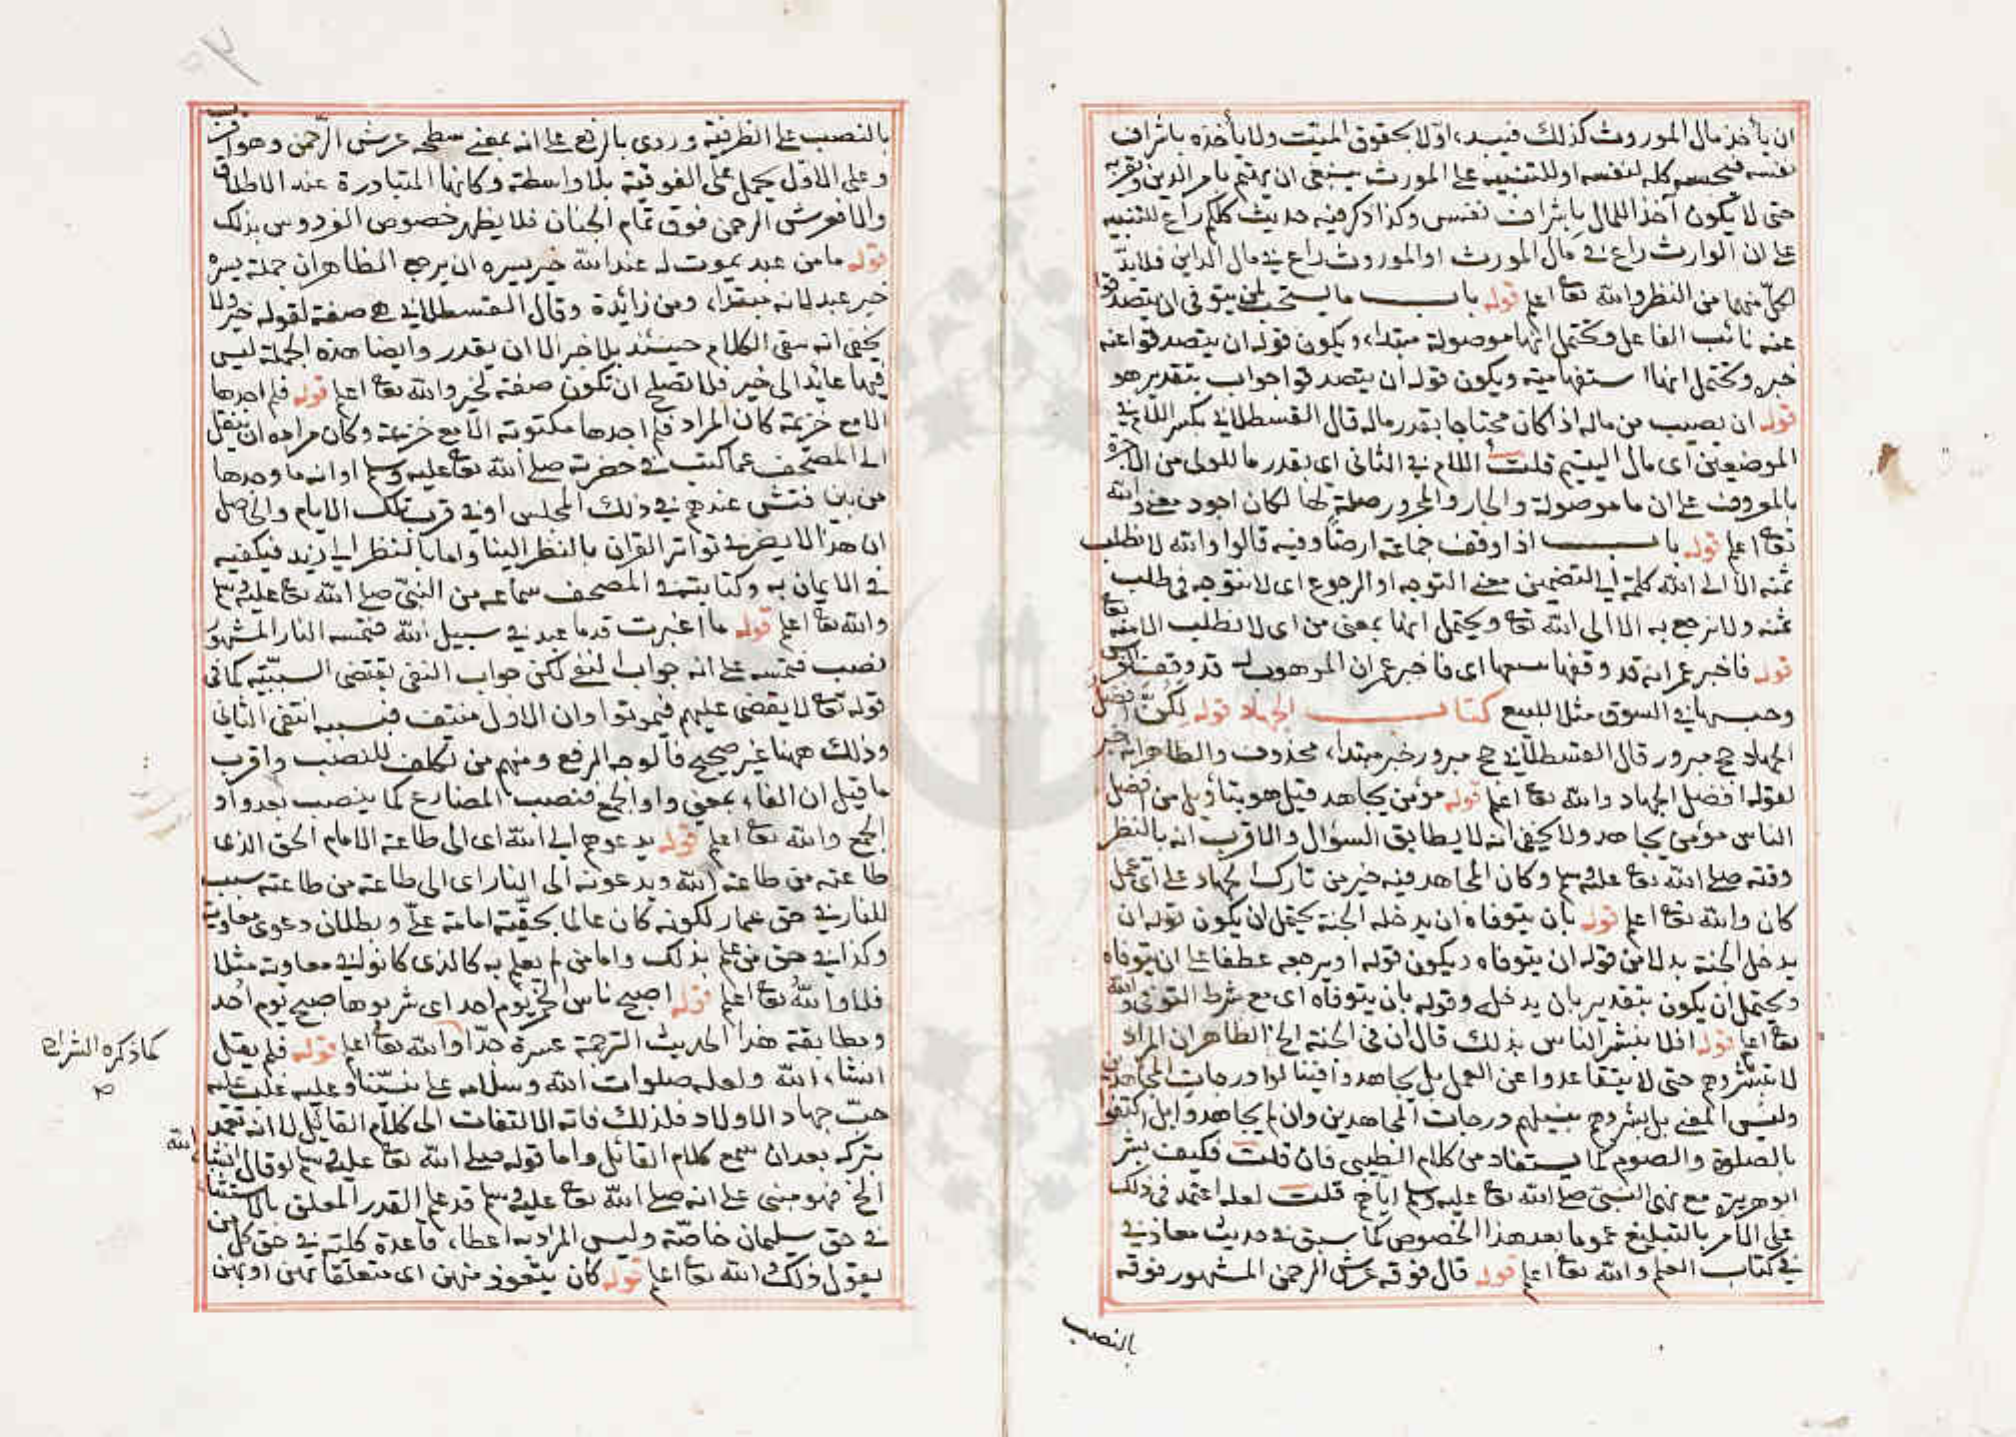 ان يأخذ مال الموروث كذلك فيبدء اوّلا بحقوق الميّت ولا يأخذه باشراف
نفسه فيحسبه كله لنفسه او للتنبيه على المورث ينبغى ان يهتم بامر الدين وتقريره
حتى لا يكون آخذ المال باشراف نفس وكذا ذكر فيه حديث كلكم راع للتنبيه
على ان الوارث راع في مال المورث او الموروث راع في مال الداين فلابدّ
لكلّ منهما من النظر والله تعا اعلم قوله باب ما يستحب لمن يتوفى ان يتصدقوا
عنه نائب الفاعل ويحتمل انها موصولة مبتداء ويكون قوله ان يتصدقوا عنه
خبره ويحتمل انها استفهامية ويكون قوله ان يتصدقوا جواب بتقدير هو
قوله ان يصيب من ماله اذا كان محتاجا بقدر ماله قال القسطلاني بكسر اللام في
الموضعين اى مال اليتيم قلت اللام في الثاني اى بقدر ما للولى من الاجرة
بالمعروف على ان ما موصولة والجار والمجرور صلة لها لكان اجود معنى والله
تعا اعلم قوله باب اذا وقف جماعة ارضا وفيه قالوا والله لا نطلب
ثمنه الا الى الله كلمة الى لتضمين معنى التوجه او الرجوع اى لا نتوجه في طلب
ثمنه ولا نرجع به الا الى الله تعا ويحتمل انها بمعنى من اى لا نطلب الا منه تعا
قوله فاخبر عمر انه قد وقفها يبيعها اى فاخبر عمر ان الموهوب له قد وقف الفرس
وحبسها في السوق مثلا للبيع كتاب الجهاد قوله لكنّ افضل
الجهاد حج مبرور قال القسطلاني حج مبرور خبر مبتداء محذوف والظاهر انه خبر
لقوله افضل الجهاد والله تعا اعلم قوله مؤمن يجاهد قيل هو بتأويل من افضل
الناس مؤمن يجاهد ولا يخفى انه لا يطابق السؤال والاقرب انه بالنظر
وقته صلى الله تعا عليه وسلم وكان المجاهد فيه خير من تارك الجهاد على اى عمل
كان والله تعا اعلم قوله بان يتوفاه ان يدخله الجنة يحتمل ان يكون قوله ان
يدخل الجنة بدلا من قوله ان يتوفاه ويكون قوله او يرجعه عطفا على ان يتوفاه
ويحتمل ان يكون بتقدير بان يدخله وقوله بان يتوفاه اى مع شرط التوفى والله
تعا اعلم قوله افلا نبشر الناس بذلك قال ان في الجنة الخ الظاهر ان المراد
لا تبشروهم حتى لا يتقاعدوا عن العمل بل يجاهدوا فينالوا درجات المجاهدين
وليس المعنى بل بشروهم بنيلهم درجات المجاهدين وان لم يجاهدوا بل اكتفوا
بالصلوة والصوم كما يستفاد من كلام الطيبي فان قلت فكيف بشر
ابو هريرة مع نهى النبيّ صلى الله تعا عليه وسلم اياهم قلت لعله اعتمد في ذلك
على الامر بالتبليغ عموما بعد هذا الخصوص كما سبق في حديث معاذ في
في كتاب العلم والله تعا اعلم قوله قال فوقه عرش الرحمن المشهور فوقه
بالنصب
بالنصب على الظرفية وروى بالرفع على انه بمعنى سطحه عرش الرّحمن وهو اقرب
وعلى الاوّل يحمل على الفوقية بلا واسطة وكانها المتبادرة عند الاطلاق
والا فعرش الرحمن فوق تمام الجنان فلا يظهر خصوص الفردوس بذلك
قوله ما من عبد يموت له عند الله خير يسره ان يرجع الظاهر ان جملة يسره
خبر عبد لانه مبتداء ومن زائدة وقال القسطلاني هي صفة لقوله خير ولا
يخفى انه يبقى الكلام حينئذ بلا خبر الا ان يقدر وايضا هذه الجملة ليس
فيها عائد الى خير فلا تصلح ان تكون صفة لخير والله تعا اعلم قوله فلم اجدها
الا مع خزيمة كان المراد فلم اجدها مكتوبة الا مع خزيمة وكان مراده ان ينقل
الى المصحف عما كتب في حضرته صلى الله تعا عليه وسلم او انه ما وجدها
من بين فتش عندهم في ذلك المجلس او في قرب تلك الايام والحاصل
ان هذا لا يضر في تواتر القران بالنظر الينا واما بالنظر الى زيد فيكفيه
في الايمان به وكتابته في المصحف سماعه من النبيّ صلى الله تعا عليه وسلم
والله تعا اعلم قوله ما اغبرت قدما عبد في سبيل الله فتمسه النار المشهور
نصب فتمسه على انه جواب النفى لكن جواب النفى يقتضى السببيّة كما في
قوله تعا لا يقضى عليهم فيموتوا وان الاول منتف فبسببه انتفى الثاني
وذلك ههنا غير صحيح فالوجه الرفع ومنهم من تكلف للنصب واقرب
ما قيل ان الفاء بمعنى واو الجمع فنصب المضارع كما ينصب بعد واو
الجمع والله تعا اعلم قوله يدعوهم الى الله اى الى طاعة الامام الحق الذى
طاعته من طاعة الله ويدعونه الى النار اى الى طاعة من طاعته سبب
للنار في حق عمار لكونه كان عالما بحقّية امامة علىّ وبطلان دعوى معاوية
وكذا في حق من علم بذلك واما من لم يعلم به كالذى كانوا في معاوية مثلا
فلا والله تعا اعلم قوله اصبح ناس الخمر يوم احد اى شربوها صبح يوم احد
ومطابقة هذا الحديث الترجمة عسرة جدّا والله تعا اعلم قوله فلم يقل
كما ذكره الشراح
صح
انشاء الله ولعله صلوات الله وسلامه على نبيّنا وعليه غلب عليه
حبّ جهاد الاولاد فلذلك فاته الالتفات الى كلام القائل لا انه تعمد
بتركه بعد ان سمع كلام القائل واما قوله صلى الله تعا عليه وسلم لو قال انشاء الله
الخ فهو مبنى على انه صلى الله تعا عليه وسلم قد علم القدر المعلق بالاستثناء
في حق سليمان خاصّة وليس المراد به اعطاء قاعدة كلية في حق كل من
يقول ذلك الله تعا اعلم قوله كان يتعوذ منهن اى متعلقا بهن او بهن